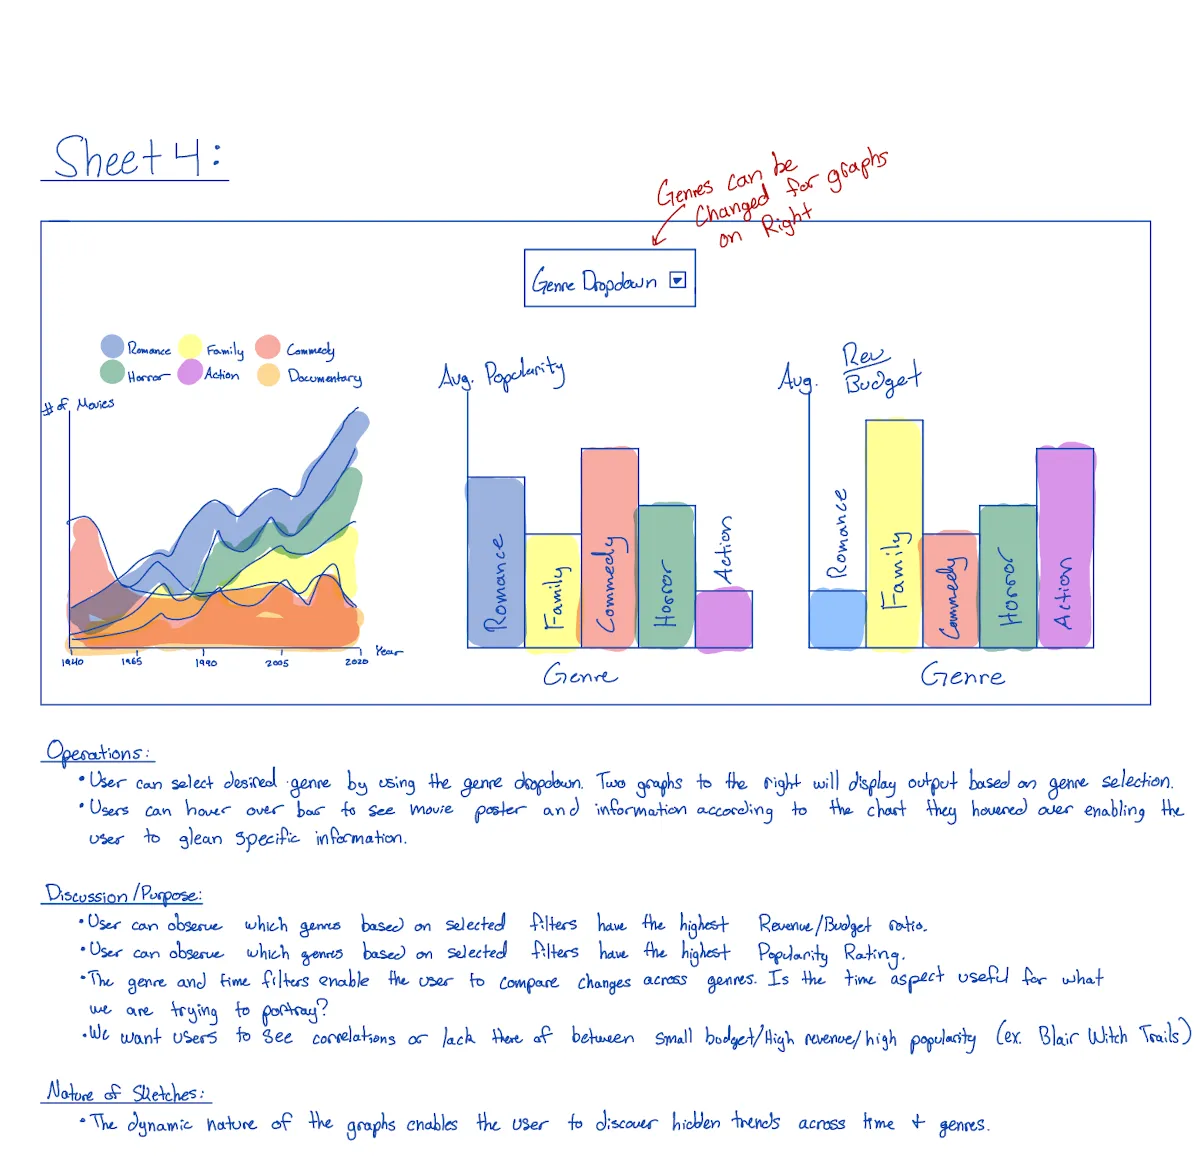 Sheet 4:
Genres can be
Changed for graphs
on Right
Genre Dropdown
Romance Family Commedy
Horror Action Documentary
# of Movies
1940 1965 1990 2005 2020 Year
Avg. Popularity
Romance Family Commedy Horror Action
Genre
Avg. Rev
Budget
Romance Family Commedy Horror Action
Genre
Operations:
• User can select desired genre by using the genre dropdown. Two graphs to the right will display output based on genre selection.
• Users can hover over bar to see movie poster and information according to the chart they hovered over enabling the
user to glean specific information.
Discussion/Purpose:
• User can observe which genres based on selected filters have the highest Revenue/Budget ratio.
• User can observe which genres based on selected filters have the highest Popularity Rating.
• The genre and time filters enable the user to compare changes across genres. Is the time aspect useful for what
we are trying to portray?
• We want users to see correlations or lack there of between small budget/High revenue/high popularity (ex. Blair Witch Trails)
Nature of Sketches:
• The dynamic nature of the graphs enables the user to discover hidden trends across time + genres.